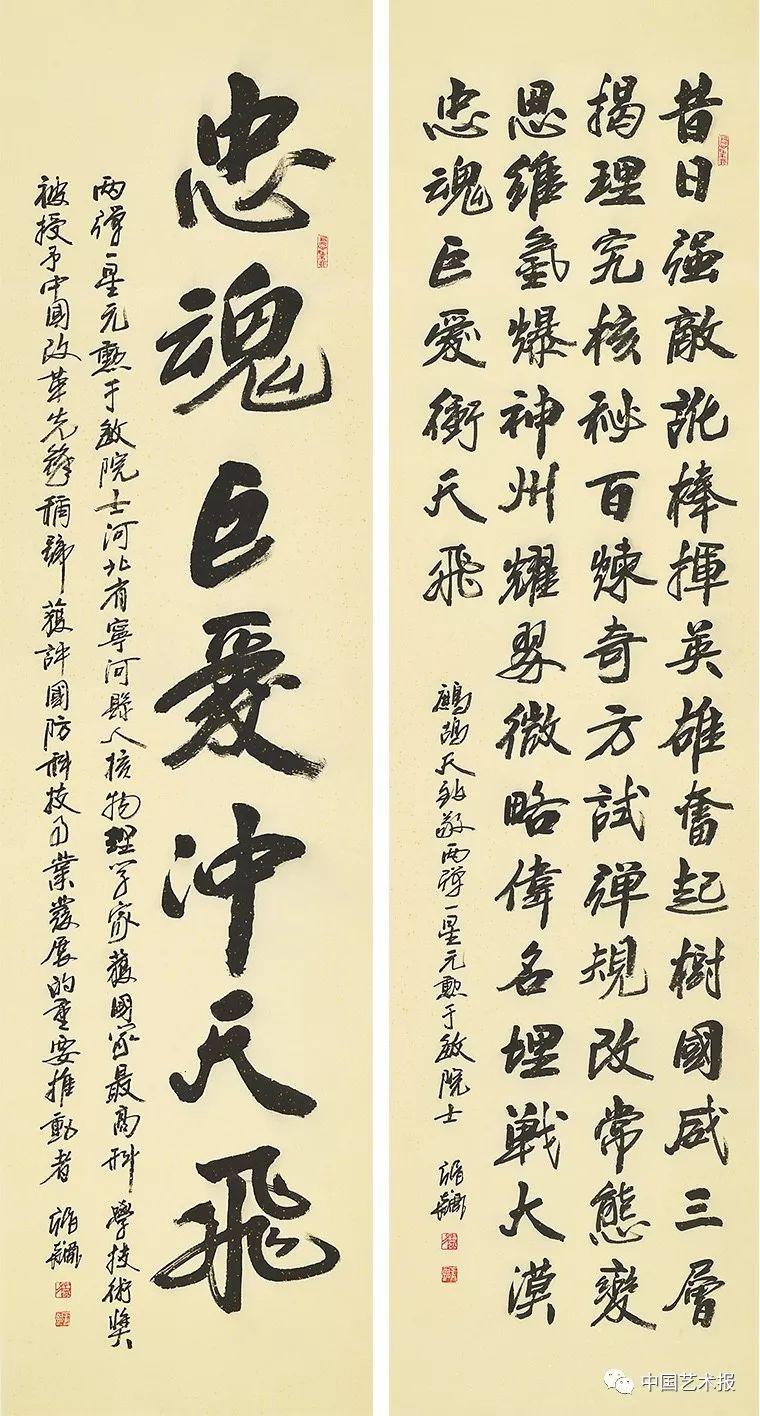 昔日强敵訛棒揮英雄奮起樹國威三層
揭理究核秘百煉奇方試彈規改常態變
思維氫爆神州耀翠微略偉名埋戰大漠
忠魂巨愛衝天飛
鷓鴣天致敬两彈一星元勳于敏院士
忠魂巨愛冲天飛
两彈一星元勳于敏院士河北省寧河縣人核物理学家獲國家最高科學技術奬
被授予中國改革先鋒稱號獲評國防科技事業發展的重要推動者
中国艺术报